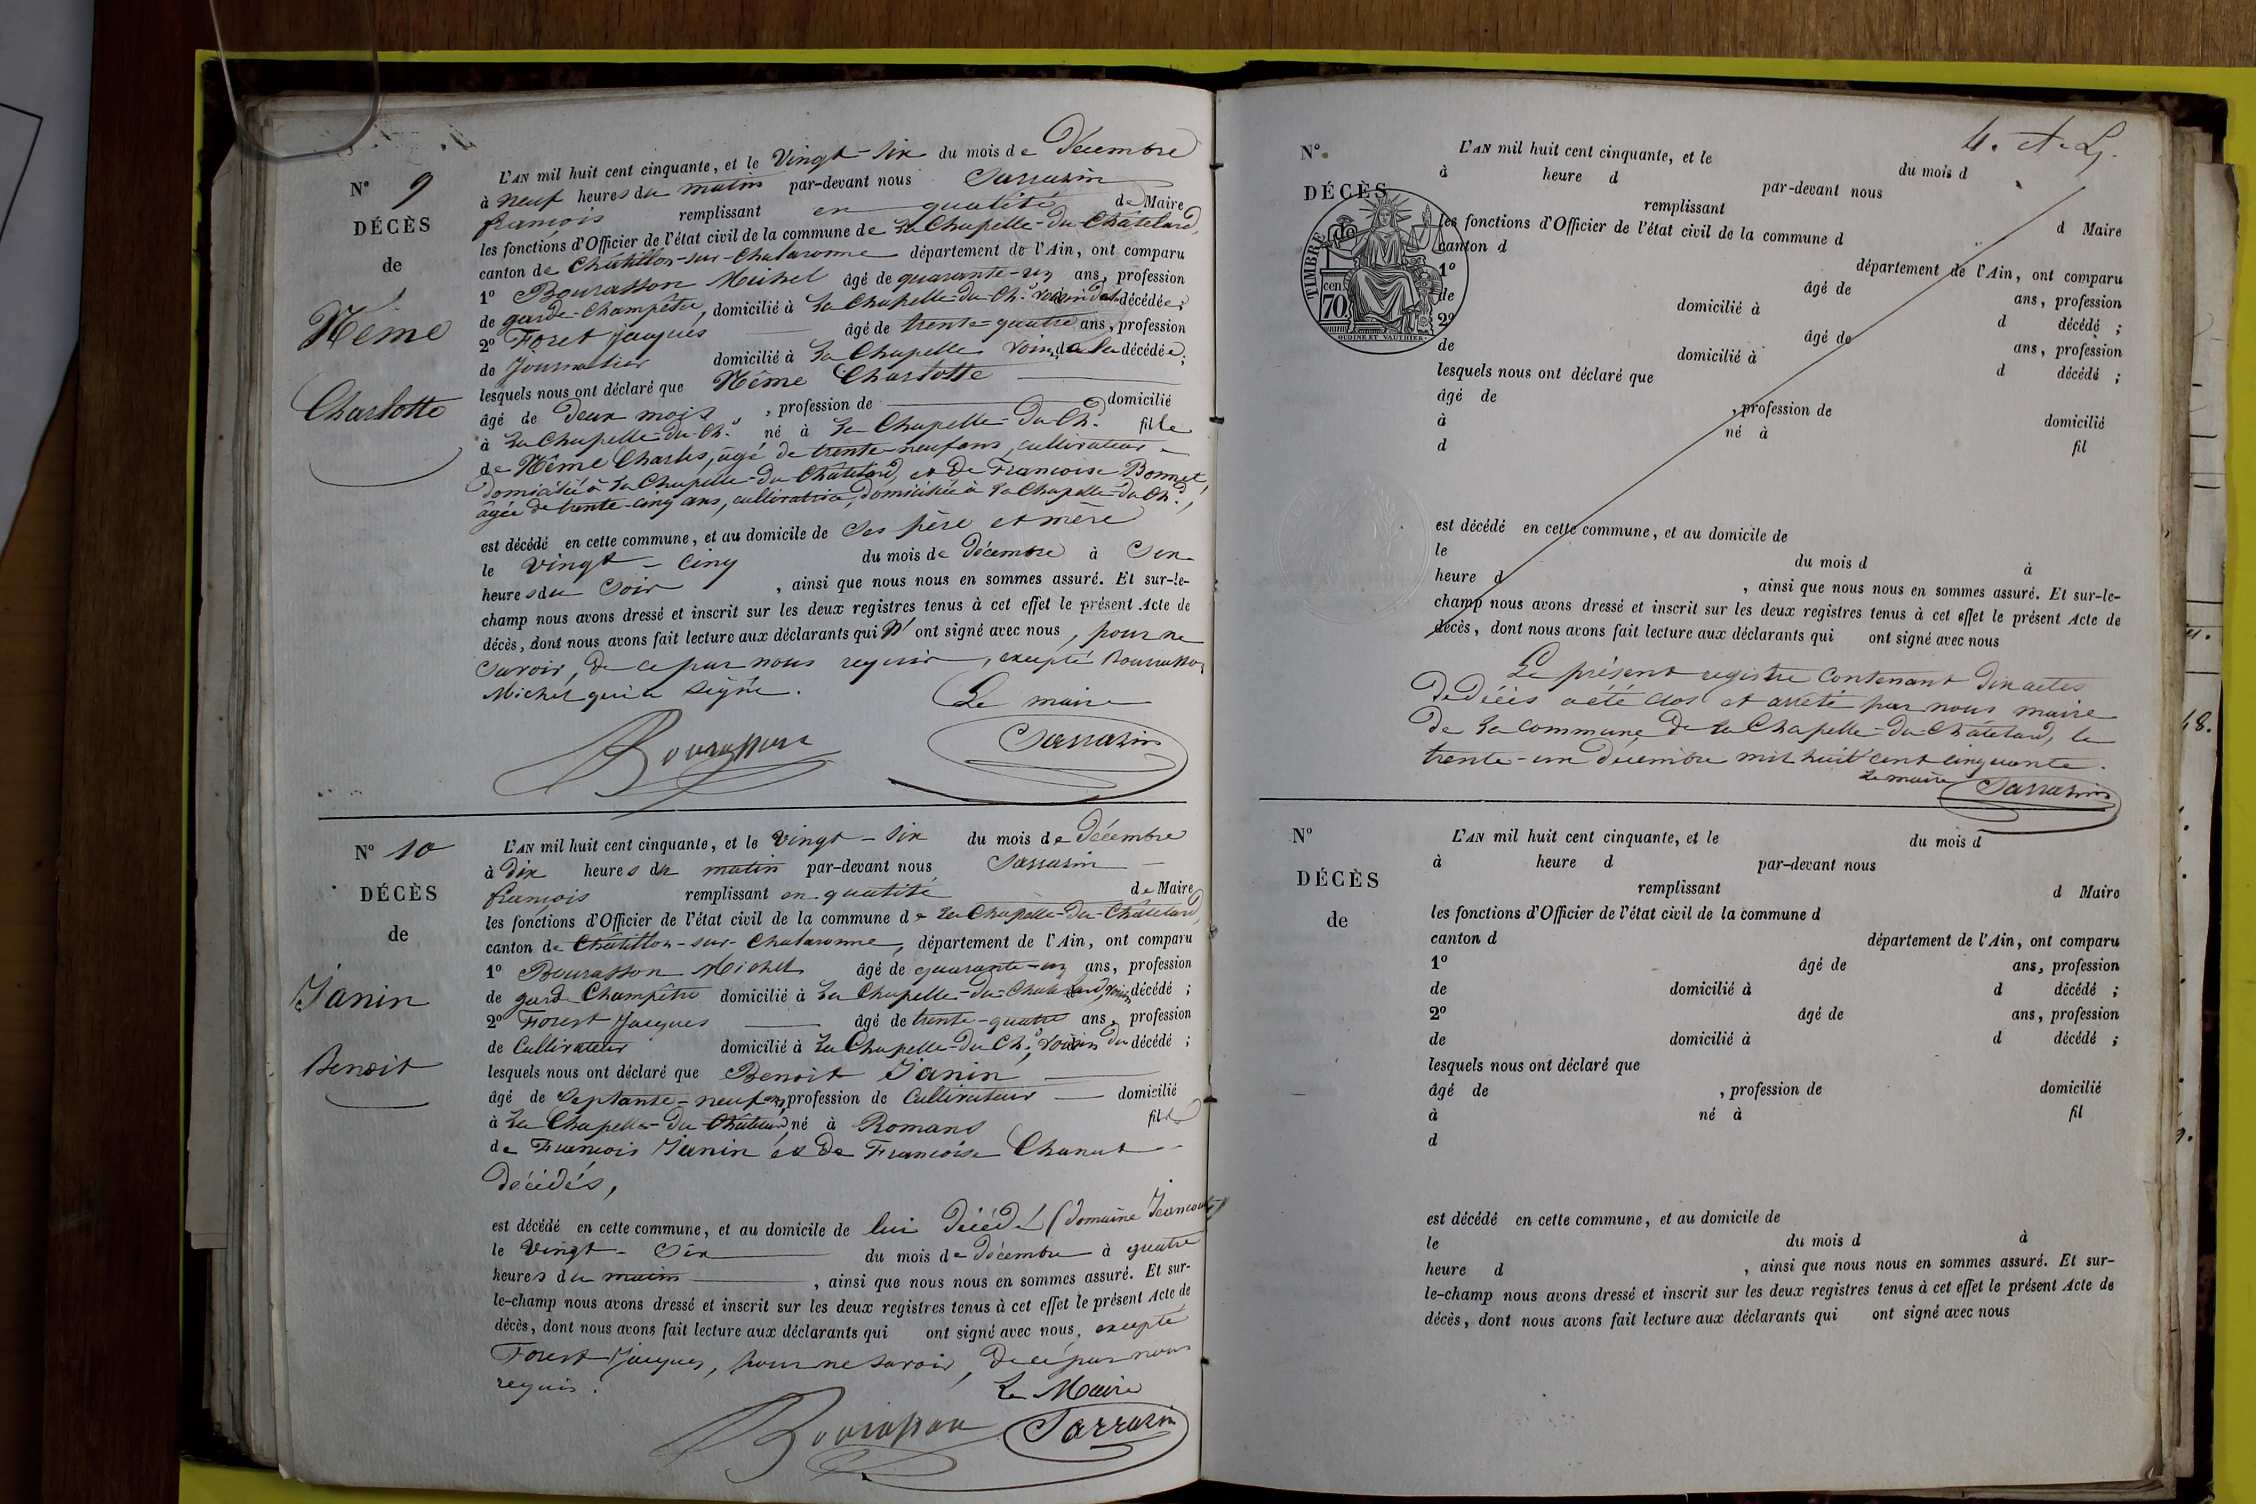 N° 9
DÉCÈS
de
Nême
Charlotte
L'AN mil huit cent cinquante, et le Vingt-six du mois de Décembre
à neuf heures du matin par-devant nous Sarrazin
françois remplissant en qualité de Maire
les fonctions d'Officier de l'état civil de la commune de La Chapelle-du-Châtelard,
canton de Châtillon-sur-Chalaronne département de l'Ain, ont comparu
1° Bourasson Michel âgé de quarante-un ans, profession
de garde-Champêtre, domicilié à La Chapelle-du-Ch.d voisin de la décédée;
2° Foret Jacques âgé de trente-quatre ans, profession
de Journalier domicilié à La Chapelle voisin de la décédée;
lesquels nous ont déclaré que Nême Charlotte
âgé de deux mois, profession de domicilié
à La Chapelle-du-Ch.d né à La Chapelle-Du-Ch.d fille
de Nême Charles, âgé de trente-neuf ans, cultivateur
domicilié à La Chapelle-du-Châtelard, et De Françoise Bonnet,
âgée de trente-cinq ans, cultivatrice, domiciliée à La Chapelle-du-Ch.d,
est décédé en cette commune, et au domicile de ses père et mère
le vingt-cinq du mois de Décembre à six
heures du soir, ainsi que nous nous en sommes assuré. Et sur-le-
champ nous avons dressé et inscrit sur les deux registres tenus à cet effet le présent Acte de
décès, dont nous avons fait lecture aux déclarants qui n'ont signé avec nous, pour ne
savoir, de ce par nous requis, excepté Bourasson
Michel qui a signé.
Le maire
Bourasson Sarrazin
N° 10
DÉCÈS
de
Janin
Benoit
L'AN mil huit cent cinquante, et le vingt-six du mois de Décembre
à dix heures du matin par-devant nous Sarrazin
françois remplissant en qualité de Maire
les fonctions d'Officier de l'état civil de la commune de La Chapelle-du-Châtelard,
canton de Châtillon-sur-Chalaronne, département de l'Ain, ont comparu
1° Bourasson Michel âgé de quarante-un ans, profession
de garde Champêtre domicilié à La Chapelle-du-Chatelard, voisin décédé;
2° Forest Jacques âgé de trente-quatre ans, profession
de Cultivateur domicilié à La Chapelle-Du-Ch.d, voisin du décédé;
lesquels nous ont déclaré que Benoit Janin
âgé de Septante-neuf ans, profession de Cultivateur domicilié
à La Chapelle-Du-Châtelard, né à Romans fils
de François Janin et De Françoise Chanut
décédés,
est décédé en cette commune, et au domicile de lui décédé (domaine
le Vingt-Six du mois de Décembre à quatre
heures du matin, ainsi que nous nous en sommes assuré. Et sur-
le-champ nous avons dressé et inscrit sur les deux registres tenus à cet effet le présent Acte de
décès, dont nous avons fait lecture aux déclarants qui ont signé avec nous, excepté
Forest Jacques, pour ne savoir, de ce par nous
requis.
Le Maire
Bourasson Sarrazin
N°
DÉCÈS
TIMBRE
70
cen
OUDINÉ ET VAUTHIER
L'AN mil huit cent cinquante, et le du mois d
à heure d par-devant nous
remplissant d Maire
les fonctions d'Officier de l'état civil de la commune d
canton d département de l'Ain, ont comparu
1° âgé de ans, profession
de domicilié à d décédé;
2° âgé de ans, profession
de domicilié à d décédé;
lesquels nous ont déclaré que
âgé de , profession de domicilié
à né à fil
d
est décédé en cette commune, et au domicile de
le du mois d à
heure d , ainsi que nous nous en sommes assuré. Et sur-le-
champ nous avons dressé et inscrit sur les deux registres tenus à cet effet le présent Acte de
décès, dont nous avons fait lecture aux déclarants qui ont signé avec nous
Le présent registre contenant dix actes
De Décès a été clos et arrêté par nous maire
De La commune De La Chapelle-Du-Châtelard, le
trente-un Décembre mil huit cent cinquante.
Le maire Sarrazin
N°
DÉCÈS
de
L'AN mil huit cent cinquante, et le du mois d
à heure d par-devant nous
remplissant d Maire
les fonctions d'Officier de l'état civil de la commune d
canton d département de l'Ain, ont comparu
1° âgé de ans, profession
de domicilié à d décédé;
2° âgé de ans, profession
de domicilié à d décédé;
lesquels nous ont déclaré que
âgé de , profession de domicilié
à né à fil
d
est décédé en cette commune, et au domicile de
le du mois d à
heure d , ainsi que nous nous en sommes assuré. Et sur-
le-champ nous avons dressé et inscrit sur les deux registres tenus à cet effet le présent Acte de
décès, dont nous avons fait lecture aux déclarants qui ont signé avec nous